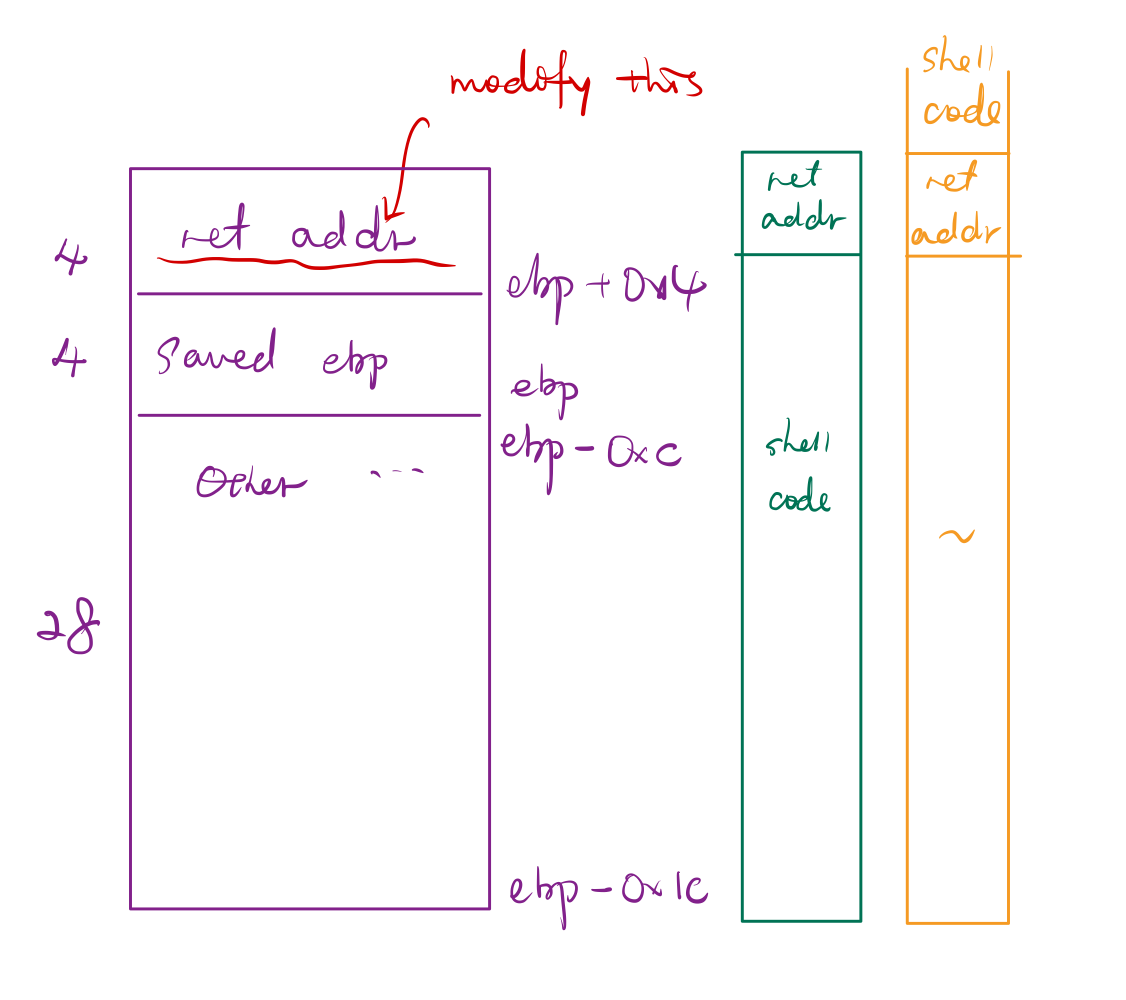 modofy this
4
ret addr
ebp + 0x4
4
Saved ebp
ebp
ebp - 0xc
Other ...
28
ebp - 0x1c
ret
addr
shell
code
shell
code
ret
addr
~